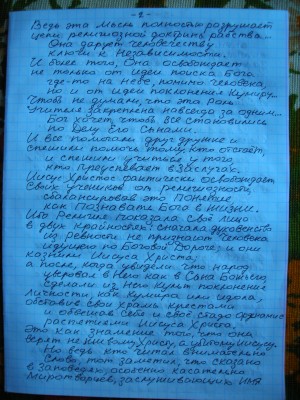 - 2 -
Ведь эта Мысль полностью разрушает
цепи религиозной доктрины рабства...
Она дарует человечеству
ключи к Независимости.
И более того, Она освобождает
не только от идеи поиска Бога
где-то на небе, помимо Человека,
но и от идеи поклонения Кумиру...
Чтоб не думали, что эта роль
Учителя закреплена навсегда за одним...
Бог хочет чтобы все становились
по Делу Его Сынами.
И все помогали друг дружке и
спешили помочь тому, кто отстаёт,
и спешили учиться у того,
кто преуспевает в Заслугах.
Иисус Христос фактически освобождает
Своих учеников от религиозности,
сбалансировав это понятие,
как Познавать Бога в жизни.
Ибо Религие показала своё лицо
в двух крайностях: сначала духовенство
из ревности не признают Человека
идущего по Божьей Дороге; и они
казнили Иисуса Христа,
а после, когда увидели, что народ
уверовал в Него как в Сана Божьего,
сделали из Него культ поклонения
личности, как кумира или идола,
обставив свои храмы крестами
и обвешав себя и своё стадо
распятием Иисуса Христа,
Это как знамение того, что они
верят не живому Христу, а убитому Иисусу.
Но ведь кто читал внимательно
Слово, тот заметил, что сказано
в Заповедях, особенно касательно
Миротворцев, заслуживающих